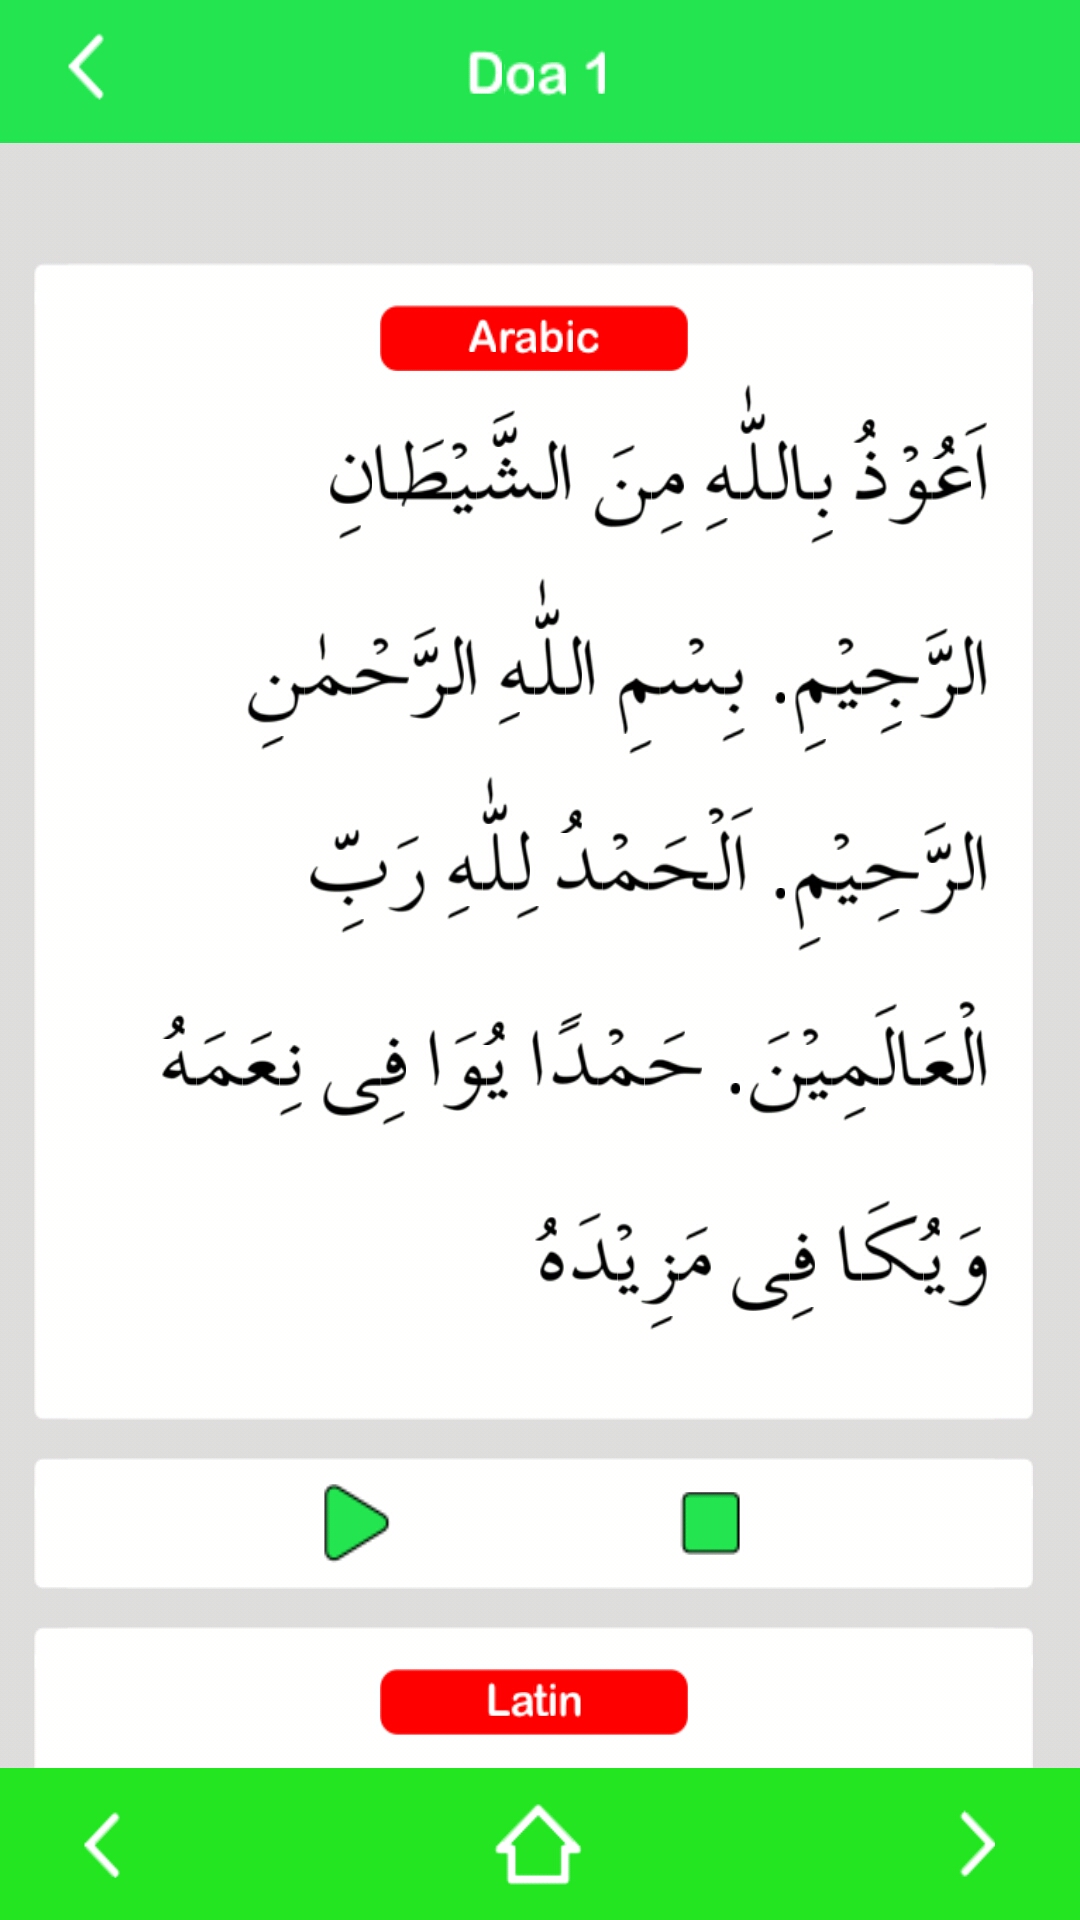 Doa 1
Arabic
اَعُوْذُ بِاللّٰهِ مِنَ الشَّيْطَانِ
الرَّجِيْمِ. بِسْمِ اللّٰهِ الرَّحْمٰنِ
الرَّحِيْمِ. اَلْحَمْدُ لِلّٰهِ رَبِّ
الْعَالَمِيْنَ. حَمْدًا يُوَا فِى نِعَمَهُ
وَيُكَا فِى مَزِيْدَهُ
Latin